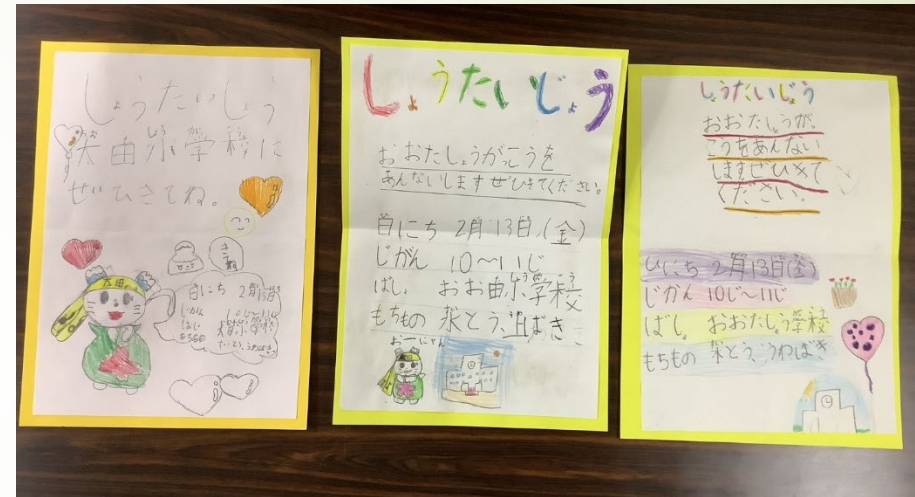 しょうたいじょう
太田小学校に
ぜひきてね。
太田
日にち 2月13日
じかん 10じ〜11じ
しょうたいじょう
おおたしょうがっこうを
あんないしますぜひきてください。
日にち 2月13日(金)
じかん 10〜11じ
ばしょ おお田小学校
もちもの 水とう、上ばき
おーにゃん
しょうたいじょう
おおたしょうが
こうをあんない
しますぜひきて
ください。
ひにち 2月13日(金)
じかん 10じ〜11じ
ばしょ おおたしょう学校
もちもの 水とう、うわばき